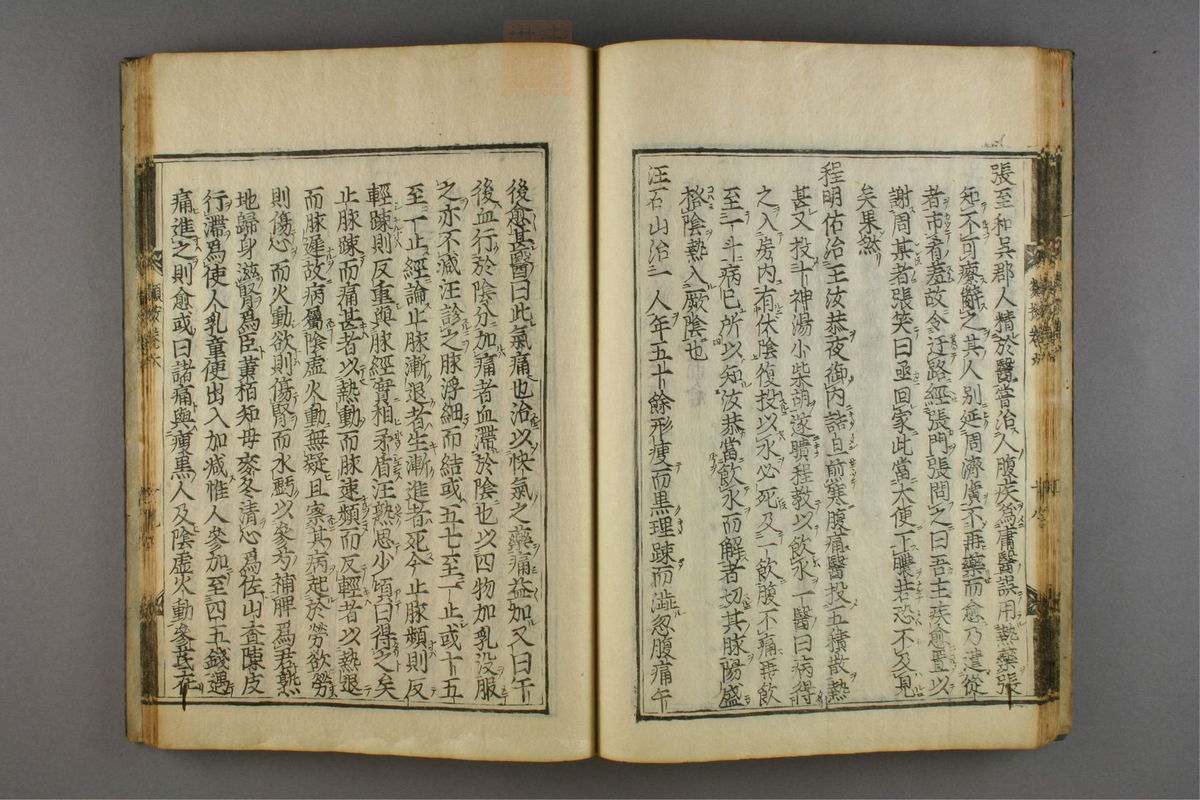 張至和呉郡人精於醫嘗治人腹疾為庸醫誤用熱藥張
知不可療辭之其人別延周濟廣不再藥而愈乃遣從
者市肴羞故令迂路經張門張問之曰吾主疾愈置以
謝周某者張笑曰亟回家此當大便下膿若恐不及見
矣果然
程明佑治王汝恭夜御内詰旦煎寐腹痛醫投五積散熱
甚又投十神湯小柴胡遂䐜程教以飲水一醫曰病得
之入房内有伏陰復投以水必死及一飲腹不痛再飲
至一斗病已所以知汝恭當飲水而解者切其脉陽盛
格陰熱入厥陰也
汪石山治一人年五十餘形瘦而黒理疎而澁忽腹痛午
後愈甚醫曰此氣痛也治以快氣之藥痛益加又曰午
後血行於陰分加痛者血滯於陰也以四物加乳没服
之亦不减汪診之脉浮細而結或五七至一止或十五
至一止經論止脉漸退者生漸進者死今止脉頻則反
輕踈則反重與脉經實相矛盾汪熟思少頃曰得之矣
止脉踈而痛甚者以熱動而脉速頻而反輕者以熱退
而脉遲故病屬陰虚火動無疑且察其病起於勞欲勞
則傷心而火動欲則傷腎而水虧以參芍補脾爲君熟
地歸身滋腎爲臣黄栢知母麥冬清心爲佐山査陳皮
行滯爲使人乳童便出入加减惟人參加至四五錢遇
痛進之則愈或曰諸痛與瘦黒人及陰虚火動參芪在